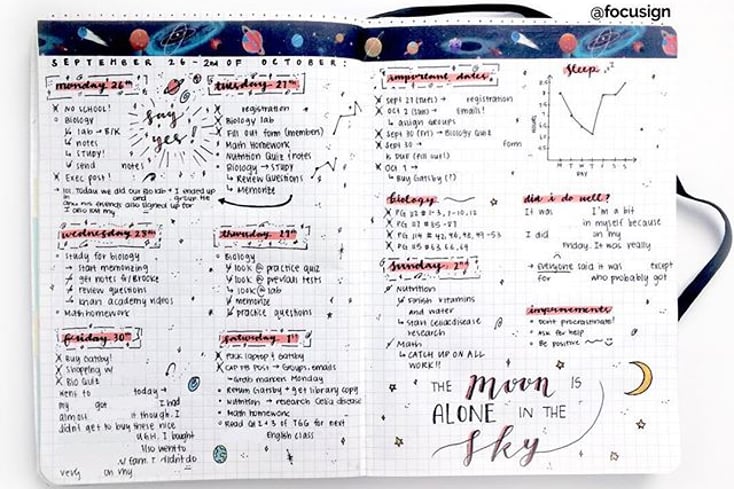 @focusign
SEPTEMBER 26 - 2nd OF OCTOBER:
monday 26th
× NO SCHOOL!
Biology
↳ lab → B/K
↳ notes
↳ STUDY!
✓ send notes
× EXEC post!
→ LOL Today we did our Bio lab + I ended up
in and group tie
and his friends also signed up for
I also got my
say
yes!
tuesday 27th
registration
× Biology lab
× Fill out form (members)
× Math Homework
× Nutrition Quiz / notes
Biology → STUDY
↳ Review Questions
↳ Memorize
wednesday 28th
• Study for biology
→ start memorizing
get notes
review questions
khan academy videos
• Math homework
thursday 29th
• Biology
look @ practice quiz
look @ previous tests
look @ lab
memorize
↳ practice questions
friday 30th
× Buy Gatsby!
× Shopping w/
× Bio Quiz
went to today →
my got I had
almost it though. I
didn't get to buy these nice
UGH. I bought
also went to
w/ fam. I didn't do
very on my
saturday 1st
× Pack laptop & Gatsby
× post → Groups, emails
→ Grad manners Monday
• Return Gatsby + get library copy
• Nutrition → research Celia disease
• Math homework
• Read CH 2 + 3 of TGG for next
English class
important dates
× Sept 27 (tues) → registration
× Oct 2 (sun) → Emails!
↳ assign Groups
× Sept 30 (fri) → Biology Quiz
× Sept 30 → form
(fill out!)
× Oct 1 →
↳ Buy Gatsby (?)
sleep
HOURS
M T W T F S S
DAY
biology
× PG 22 # 1-3, 7-10, 12
× PG 27 # 25-27
× PG 114 # 42, 46, 48, 49-53
× PG 115 # 63, 66, 69
did i do well?
It was I'm a bit
in myself because
I did on my
Friday. It was really
→ everyone said it was except
for who probably got
sunday 2nd
× Nutrition
↳ Finish vitamins
and water
↳ Start celiac disease
research
× Math
↳ CATCH UP ON ALL
WORK!!
improvements
• Don't procrastinate!
• Ask for help
• Be positive
THE moon IS
ALONE IN THE
sky